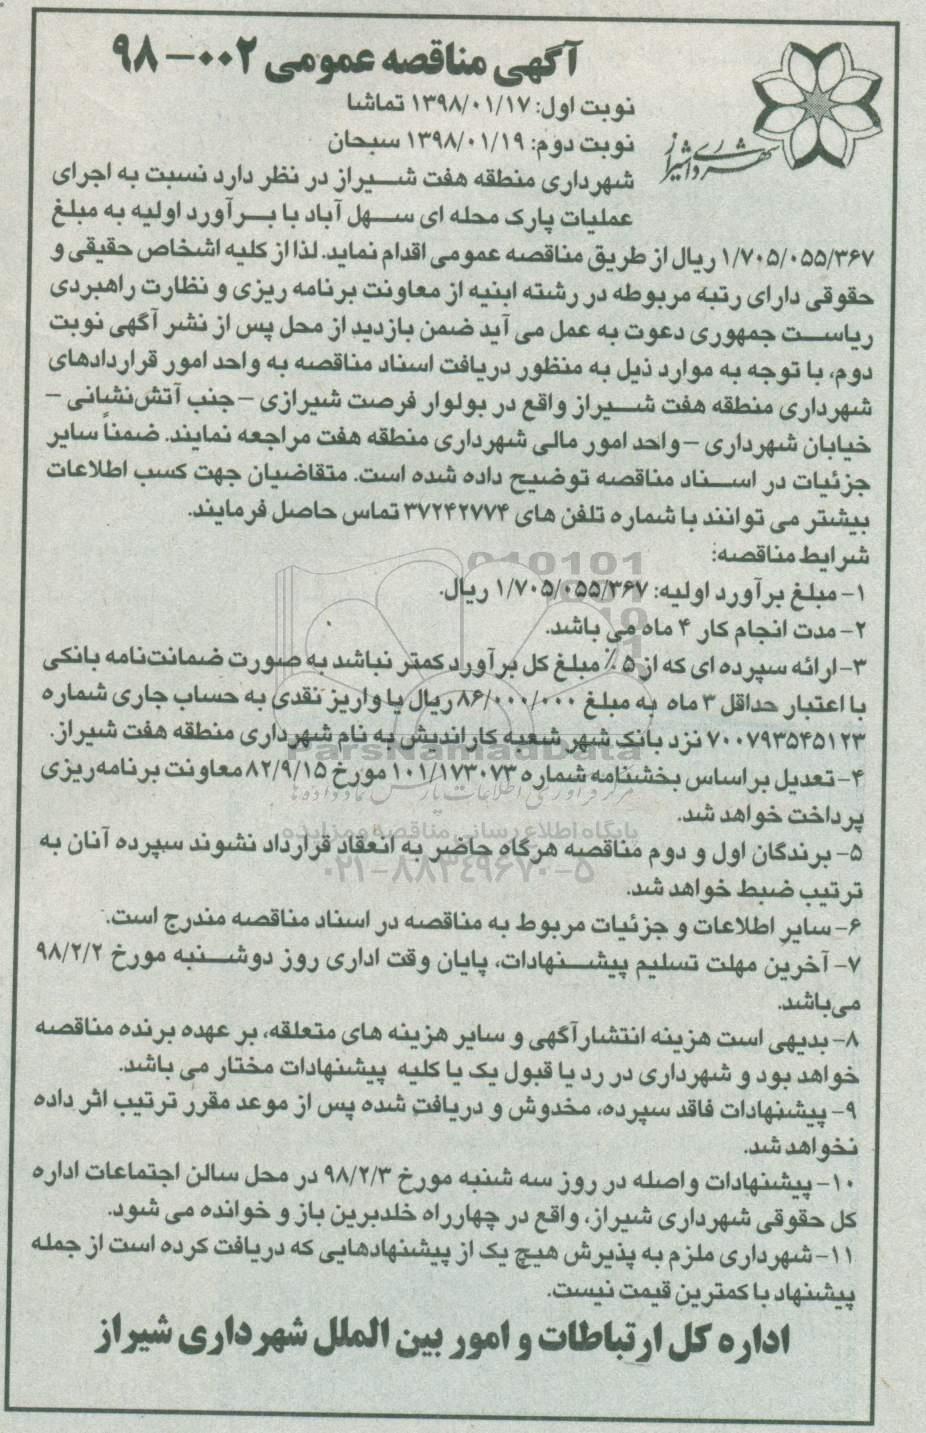 آگهی مناقصه عمومی ۰۰۲-۹۸
نوبت اول: ۱۳۹۸/۰۱/۱۷ تماشا
نوبت دوم: ۱۳۹۸/۰۱/۱۹ سبحان
شهرداری شیراز
شهرداری منطقه هفت شیراز در نظر دارد نسبت به اجرای
عملیات پارک محله ای سهل آباد با برآورد اولیه به مبلغ
۱/۷۰۵/۰۵۵/۳۶۷ ریال از طریق مناقصه عمومی اقدام نماید. لذا از کلیه اشخاص حقیقی و
حقوقی دارای رتبه مربوطه در رشته ابنیه از معاونت برنامه ریزی و نظارت راهبردی
ریاست جمهوری دعوت به عمل می آید ضمن بازدید از محل پس از نشر آگهی نوبت
دوم، با توجه به موارد ذیل به منظور دریافت اسناد مناقصه به واحد امور قراردادهای
شهرداری منطقه هفت شیراز واقع در بولوار فرصت شیرازی – جنب آتش‌نشانی –
خیابان شهرداری – واحد امور مالی شهرداری منطقه هفت مراجعه نمایند. ضمناً سایر
جزئیات در اسناد مناقصه توضیح داده شده است. متقاضیان جهت کسب اطلاعات
بیشتر می توانند با شماره تلفن های ۳۷۲۴۲۷۷۴ تماس حاصل فرمایند.
شرایط مناقصه:
۱- مبلغ برآورد اولیه: ۱/۷۰۵/۰۵۵/۳۶۷ ریال.
۲- مدت انجام کار ۴ ماه می باشد.
۳- ارائه سپرده ای که از ۵٪ مبلغ کل برآورد کمتر نباشد به صورت ضمانت‌نامه بانکی
با اعتبار حداقل ۳ ماه به مبلغ ۸۶/۰۰۰/۰۰۰ ریال یا واریز نقدی به حساب جاری شماره
۷۰۰۷۹۳۵۴۵۱۲۳ نزد بانک شهر شعبه کاراندیش به نام شهرداری منطقه هفت شیراز.
۴- تعدیل براساس بخشنامه شماره ۱۰۱/۱۷۳۰۷۳ مورخ ۸۲/۹/۱۵ معاونت برنامه‌ریزی
پرداخت خواهد شد.
۵- برندگان اول و دوم مناقصه هرگاه حاضر به انعقاد قرارداد نشوند سپرده آنان به
ترتیب ضبط خواهد شد.
۶- سایر اطلاعات و جزئیات مربوط به مناقصه در اسناد مناقصه مندرج است.
۷- آخرین مهلت تسلیم پیشنهادات، پایان وقت اداری روز دوشنبه مورخ ۹۸/۲/۲
می‌باشد.
۸- بدیهی است هزینه انتشار آگهی و سایر هزینه های متعلقه، بر عهده برنده مناقصه
خواهد بود و شهرداری در رد یا قبول یک یا کلیه پیشنهادات مختار می باشد.
۹- پیشنهادات فاقد سپرده، مخدوش و دریافت شده پس از موعد مقرر ترتیب اثر داده
نخواهد شد.
۱۰- پیشنهادات واصله در روز سه شنبه مورخ ۹۸/۲/۳ در محل سالن اجتماعات اداره
کل حقوقی شهرداری شیراز، واقع در چهارراه خلدبرین باز و خوانده می شود.
۱۱- شهرداری ملزم به پذیرش هیچ یک از پیشنهادهایی که دریافت کرده است از جمله
پیشنهاد با کمترین قیمت نیست.
اداره کل ارتباطات و امور بین الملل شهرداری شیراز
ParsNamadData
مرکز فرآوری اطلاعات پارس نماد داده ها
پایگاه اطلاع رسانی مناقصه و مزایده
۰۲۱-۸۸۳۴۹۶۷۰-۵